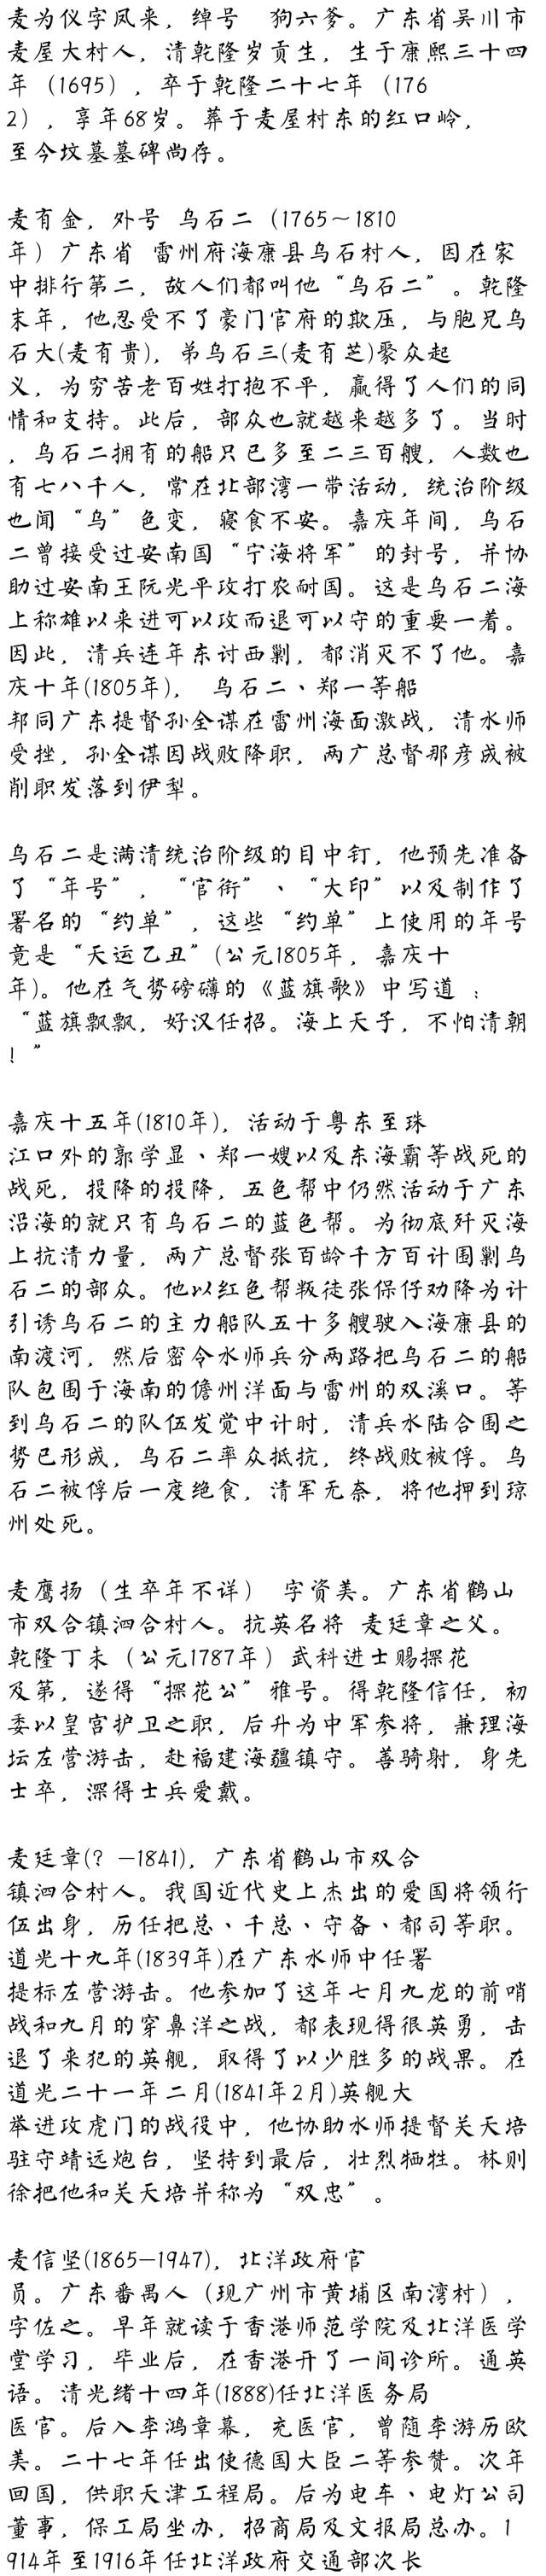 麦为仪字凤来，绰号　狗六爹。广东省吴川市
麦屋大村人，清乾隆岁贡生，生于康熙三十四
年（1695），卒于乾隆二十七年（176
2），享年68岁。葬于麦屋村东的红口岭，
至今坟墓墓碑尚存。
麦有金，外号 乌石二（1765～1810
年）广东省 雷州府海康县乌石村人，因在家
中排行第二，故人们都叫他“乌石二”。乾隆
末年，他忍受不了豪门官府的欺压，与胞兄乌
石大(麦有贵)，弟乌石三(麦有芝)聚众起
义，为穷苦老百姓打抱不平，赢得了人们的同
情和支持。此后，部众也就越来越多了。当时
，乌石二拥有的船只已多至二三百艘，人数也
有七八千人，常在北部湾一带活动，统治阶级
也闻“乌”色变，寝食不安。嘉庆年间，乌石
二曾接受过安南国“宁海将军”的封号，并协
助过安南王阮光平攻打农耐国。这是乌石二海
上称雄以来进可以攻而退可以守的重要一着。
因此，清兵连年东讨西剿，都消灭不了他。嘉
庆十年(1805年)， 乌石二、郑一等船
邦同广东提督孙全谋在雷州海面激战，清水师
受挫，孙全谋因战败降职，两广总督那彦成被
削职发落到伊犁。
乌石二是满清统治阶级的目中钉，他预先准备
了“年号”，“官衔”、“大印”以及制作了
署名的“约单”，这些“约单”上使用的年号
竟是“天运乙丑”(公元1805年，嘉庆十
年)。他在气势磅礴的《蓝旗歌》中写道：
“蓝旗飘飘，好汉任招。海上天子，不怕清朝
！”
嘉庆十五年(1810年)，活动于粤东至珠
江口外的郭学显、郑一嫂以及东海霸等战死的
战死，投降的投降，五色帮中仍然活动于广东
沿海的就只有乌石二的蓝色帮。为彻底歼灭海
上抗清力量，两广总督张百龄千方百计围剿乌
石二的部众。他以红色帮叛徒张保仔劝降为计
引诱乌石二的主力船队五十多艘驶入海康县的
南渡河，然后密令水师兵分两路把乌石二的船
队包围于海南的儋州洋面与雷州的双溪口。等
到乌石二的队伍发觉中计时，清兵水陆合围之
势已形成，乌石二率众抵抗，终战败被俘。乌
石二被俘后一度绝食，清军无奈，将他押到琼
州处死。
麦鹰扬（生卒年不详） 字资美。广东省鹤山
市双合镇泗合村人。抗英名将 麦廷章之父。
乾隆丁未（公元1787年）武科进士赐探花
及第，遂得“探花公”雅号。得乾隆信任，初
委以皇宫护卫之职，后升为中军参将，兼理海
坛左营游击，赴福建海疆镇守。善骑射，身先
士卒，深得士兵爱戴。
麦廷章(？—1841)，广东省鹤山市双合
镇泗合村人。我国近代史上杰出的爱国将领行
伍出身，历任把总、千总、守备、都司等职。
道光十九年(1839年)在广东水师中任署
提标左营游击。他参加了这年七月九龙的前哨
战和九月的穿鼻洋之战，都表现得很英勇，击
退了来犯的英舰，取得了以少胜多的战果。在
道光二十一年二月(1841年2月)英舰大
举进攻虎门的战役中，他协助水师提督关天培
驻守靖远炮台，坚持到最后，壮烈牺牲。林则
徐把他和关天培并称为“双忠”。
麦信坚(1865—1947)，北洋政府官
员。广东番禺人（现广州市黄埔区南湾村），
字佐之。早年就读于香港师范学院及北洋医学
堂学习，毕业后，在香港开了一间诊所。通英
语。清光绪十四年(1888)任北洋医务局
医官。后入李鸿章幕，充医官，曾随李游历欧
美。二十七年任出使德国大臣二等参赞。次年
回国，供职天津工程局。后为电车、电灯公司
董事，保工局坐办，招商局及文报局总办。1
914年至1916年任北洋政府交通部次长